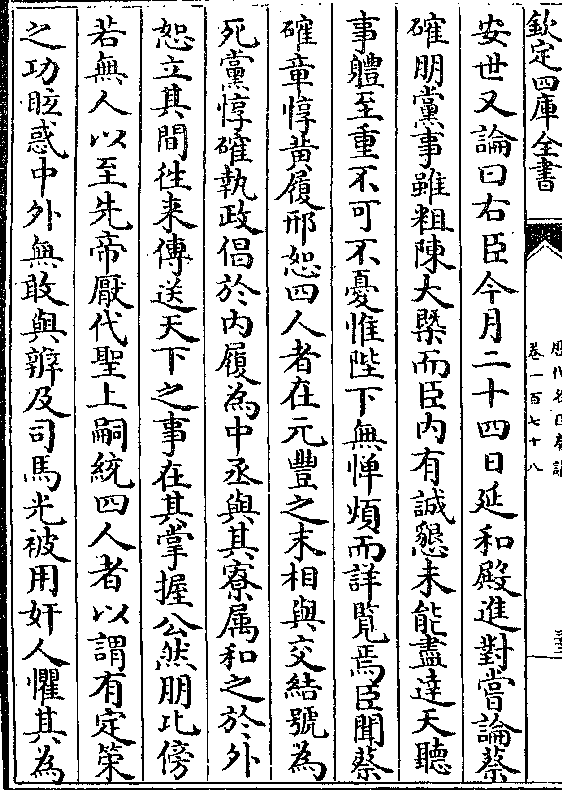 欽定四庫全書
歷代名臣奏議
卷一百七十八
安世又論曰右臣今月二十四日延和殿進對嘗論蔡
確朋黨事雖粗陳大槩而臣内有誠懇未能盡達天聽
事體至重不可不憂惟陛下無憚煩而詳覧焉臣聞蔡
確章惇黄履邢恕四人者在元豐之末相與交結號為
死黨惇確執政倡於内履為中丞與其寮屬和之於外
恕立其間徃来傳送天下之事在其掌握公然朋比傍
若無人以至先帝厭代聖上嗣統四人者以謂有定策
之功眩惑中外無敢與辨及司馬光被用奸人懼其為